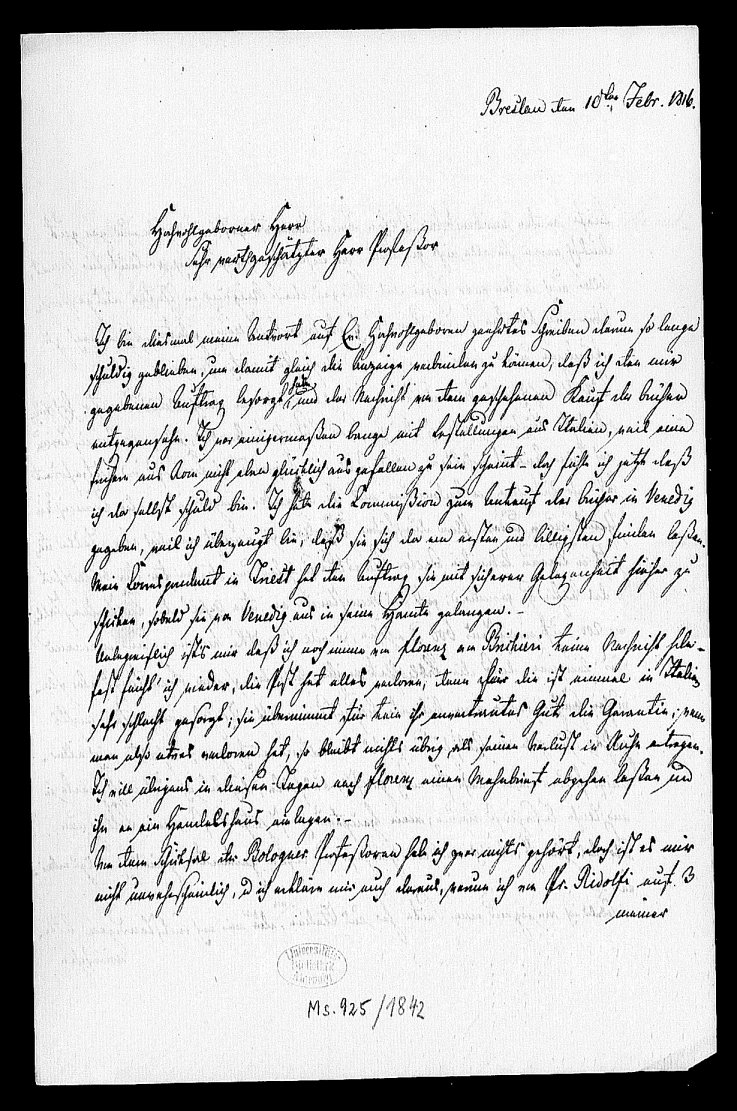 Breslau den 10ten Febr. 1816.
Hochwohlgeborner Herr
Sehr werthgeschätzter Herr Profeßor
Ich bin diesmal meine Antwort auf Ew. Hochwohlgeboren geehrtes Schreiben darum so lange
schuldig geblieben, um damit gleich die Anzeige verbinden zu können, daß ich den mir
gegebenen Auftrag besorgt habe und der Nachricht von dem geschehenen Kauf der Bücher
entgegensehe. Ich war einigermaßen bange mit Bestellungen aus Italien, weil eine
frühere aus Rom nicht eben glücklich ausgefallen zu sein scheint – doch sehe ich jetzt daß
ich da selbst schuld bin. Ich habe die Commißion zum Ankauf der Bücher in Venedig
gegeben, weil ich überzeugt bin, daß sie sich da am ersten und billigsten finden laßen.
Mein Correspondent in Triest hat den Auftrag sie mit sicherer Gelegenheit hieher zu
schicken, sobald sie von Venedig aus in seine Hände gelangen. –
Unbegreiflich ists mir daß ich noch immer von Florenz von Brichieri keine Nachricht habe –
fast fürcht' ich wieder, die Post hat alles verloren, denn für die ist einmal in Italien
sehr schlecht gesorgt; sie übernimmt für kein ihr anvertrautes Gut die Garantie; wenn
man also etwas verloren hat, so bleibt nichts übrig als seinen Verlust in Ruhe ertragen.
Ich will übrigens in diesen Tagen nach Florenz einen Mahnbrief abgehen laßen und
ihn an ein Handelshaus einlegen. –
Von dem Schicksal der Bologneser Profeßoren hab ich zwar nichts gehört, doch ist es mir
nicht unwahrscheinlich, u ich erkläre mir auch daraus, warum ich von Pr. Ridolfi auf 3
meiner
Universitäts
Bibliothek
Ms. 925/1842